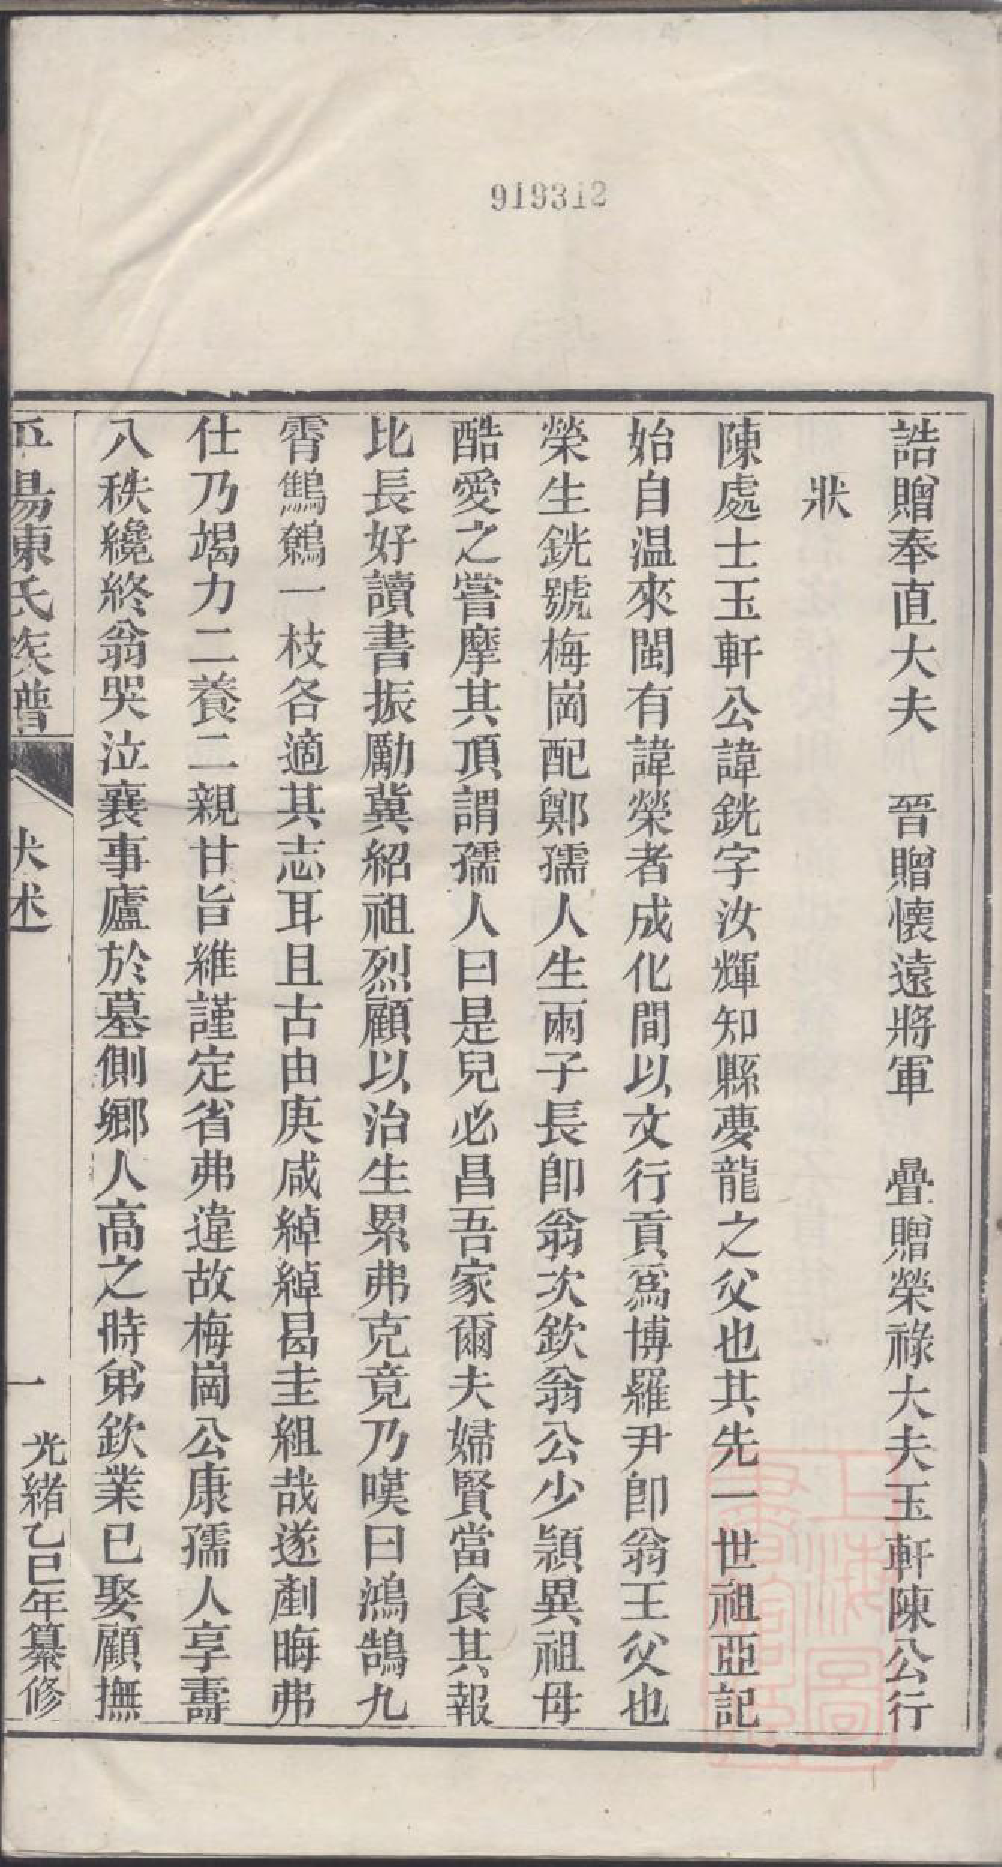 919312
誥贈奉直大夫 晉贈懷遠將軍 疊贈榮祿大夫玉軒陳公行
狀
陳處士玉軒公諱銑字汝輝知縣夢龍之父也其先一世祖亞記
始自温來閩有諱榮者成化間以文行貢爲博羅尹卽翁王父也
榮生銑號梅崗配鄭孺人生兩子長卽翁次欽翁公少穎異祖母
酷愛之嘗摩其頂謂孺人曰是兒必昌吾家爾夫婦賢當食其報
比長好讀書振勵冀紹祖烈顧以治生累弗克竟乃嘆曰鴻鵠九
霄鷦鷯一枝各適其志耳且古由庚咸綽綽曷圭組哉遂剷晦弗
仕乃竭力二養二親甘旨維謹定省弗違故梅崗公康孺人享壽
八秩纔終翁哭泣襄事廬於墓側鄉人高之時弟欽業已娶顧撫
平陽陳氏族譜
狀述
一
光緒乙巳年纂修
上海圖書館藏